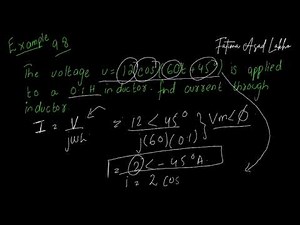 Fatima Asad Lakho
Example 9.8
The voltage v = 12 cos (60t + 45°) is applied
to a 0.1H inductor. find current through
inductor.
I = V / jωL = 12 < 45° / j(60)(0.1) } Vm < Ø
= 2 < -45° A.
i = 2 cos